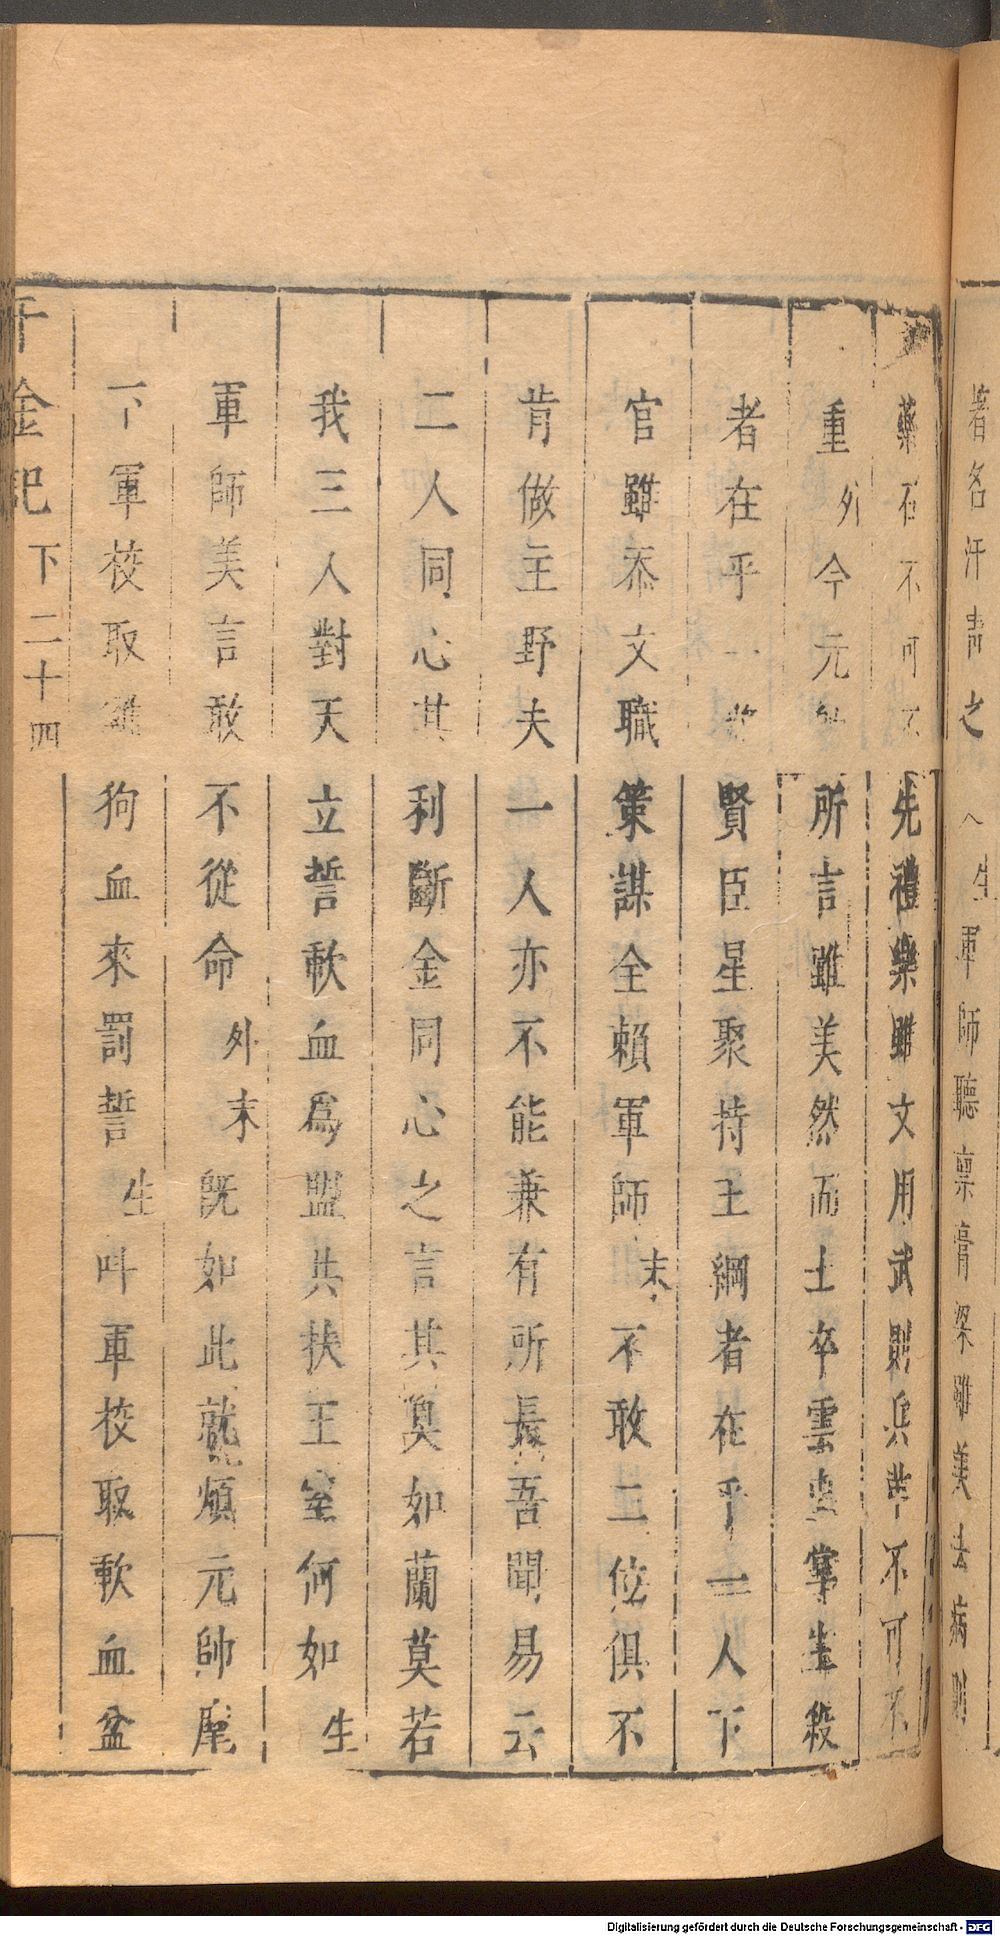 著名汗青之八生軍師聽稟膏粱雖美去病則
藥石不可不先禮樂雖文用武則兵革不可不
重外今元帥所言雖美然而士卒雲屯掌生殺
者在乎一些賢臣星聚持王綱者在乎一人下
官雖忝文職策謀全賴軍師末不敢二位俱不
肯做主野夫一人亦不能兼有所長吾聞易云
二人同心其利斷金同心之言其臭如蘭莫若
我三人對天立誓歃血爲盟共扶王室何如生
軍師美言敢不從命外末旣如此就煩元帥麾
下軍校取雞狗血來罰誓生叫軍校取歃血盆
千金記下二十四
Digitalisierung gefördert durch die Deutsche Forschungsgemeinschaft - DFG